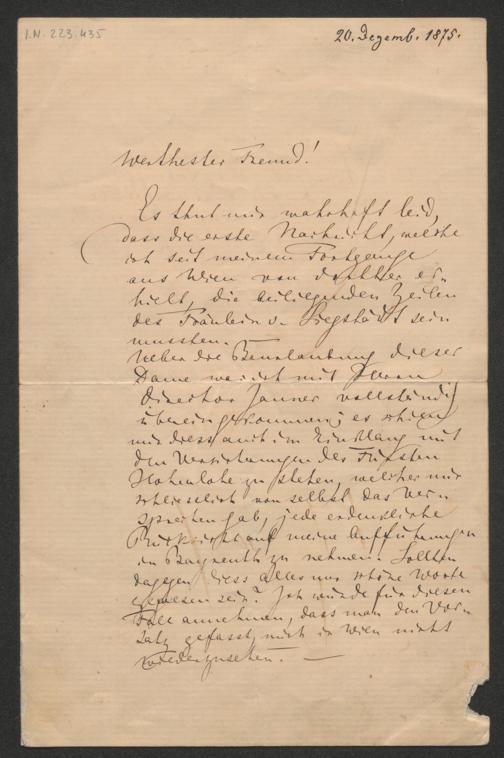 I.N. 223.435
20. Dezemb. 1875.
Werthester Freund!
Es thut mir wahrhaft leid,
dass die erste Nachricht, welche
ich seit meinem Fortgange
aus Wien von dorther er-
hielt, die beiliegenden Zeilen
des Fräulein v. Siegstädt sein
mussten.
Ueber die Beurlaubung dieser
Dame war ich mit Herrn
Director Jauner vollständig
übereingekommen; es schien
mir diess auch im Einklang mit
den Versicherungen des Fürsten
Hohenlohe zu stehen, welcher mir
schliesslich von selbst das Ver-
sprechen gab, jede erdenkliche
Rücksicht auf meine Aufführungen
in Bayreuth zu nehmen. Sollten
dagegen diess alles nur schöne Worte
gewesen sein? Ich würde für diesen
Fall annehmen, dass man den Vor-
satz gefasst, mich in Wien nicht
wiederzusehen. —